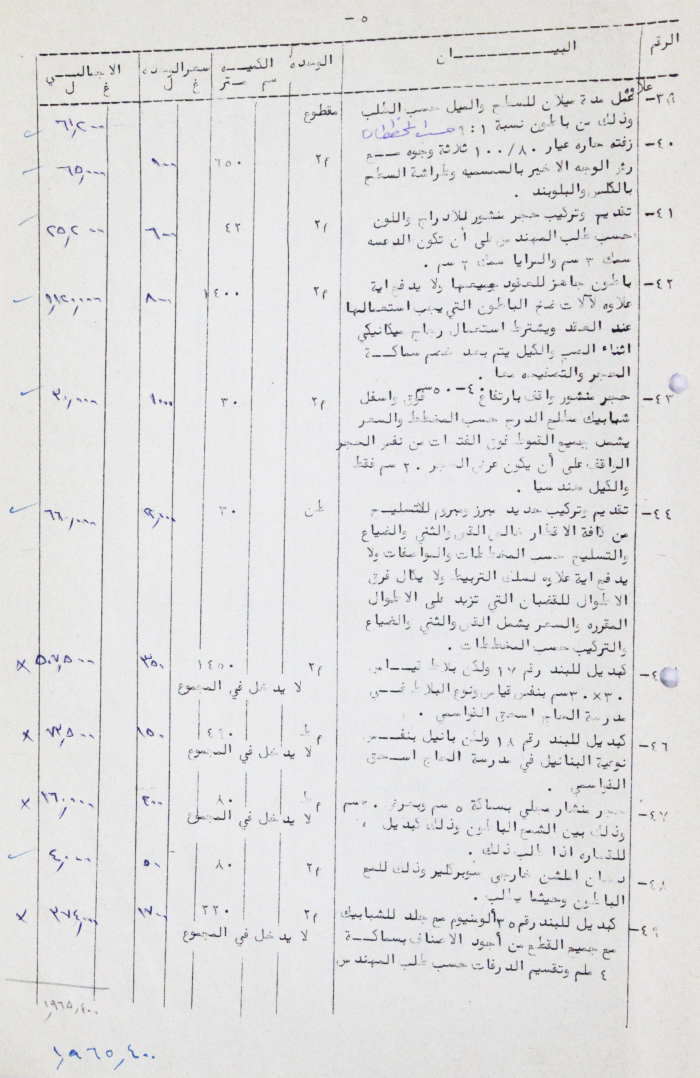 ٥ -
الرقم البيـــــــــان الوحدة الكميــه سعر الوحده الاجمالـــي
ســم ستر غ ل غ ل
علاوه
٣٩- عمل مدة ميلان للسطح والميل حسب الطلب مقطوع ٦١,٢٠٠
وذلك من باطون نسبة ١ : ٩ حسب المخططات
٤٠- زفته حاره عيار ٨٠/١٠٠ ثلاثة وجوه مــع م٢ ٦٥٠ ١٠٠ ٦٥,٠٠٠
رش الوجه الاخير بالسمسميه وطراشة السطح
بالكلس والبلوبند .
٤١- تقديم وتركيب حجر منشور للادراج واللون م٢ ٤٢ ٦٠٠ ٢٥,٢٠٠
حسب طلب المهندس على أن تكون الدعسه
سمك ٣ سم والمرايا سمك ٢ سم .
٤٢- باطون جاهز للعقود جميعها ولا يدفع اية م٢ ١٤٠٠ ٨٠٠ ١,١٢٠,٠٠٠
علاوه لآلات ضخ الباطون التي يجب استعمالها
عند العقد ويشترط استعمال رجاج ميكانيكي
اثناء الصب والكيل يتم بعد خصم سماكــة
الحجر والتصفيحه معا .
٤٣- حجر منشور واقف بارتفاع ٤٠-٥٠سم فوق واسفل م٢ ٣٠ ١٠٠٠ ٣٠,٠٠٠
شبابيك مطلع الدرج حسب المخطط والسعر
يشمل جميع القموط فوق الفتحات من نفس الحجر
الواقف على أن يكون عرض الحجر ٢٠ سم فقط
والكيل هندسيا .
٤٤- تقديم وتركيب حديد مبرز ومبروم للتسليح طن ٣٠ ٢٢,٠٠٠ ٦٦٠,٠٠٠
من كافة الاقطار خالص القص والثني والضياع
والتسليح حسب المخططات والمواصفات ولا
يدفع اية علاوه لسلك التربيط ولا يكال فرق
الاطوال للقضبان التي تزيد على الاطوال
المقرره والسعر يشمل القص والثني والضياع
والتركيب حسب المخططات .
كبديل للبند رقم ١٧ ولكن بلاط قيــاس م٢ ١٤٥٠ ٣٥٠ ٥٠٧,٥٠٠ x
٣٠×٣٠سم بنفس قياس ونوع البلاط فــي لا يدخل في المجموع
مدرسة الحاج اسحق القواسمي .
٤٦- كبديل للبند رقم ١٨ ولكن بانيل بنفــس م ط ٤٩٠ ١٥٠ ٧٣,٥٠٠ x
نوعية البنانيل في مدرسة الحاج اسـحق لا يدخل في المجموع
القواسمي .
٤٧- حجر منشار محلي بسماكة ٥ سم وبعرض سم م ط ٨٠ ٢٠٠ ١٦٠,٠٠٠ x
وذلك بين الشمع الباطون وذلك كبديل لا يدخل في المجموع
للقصاره اذا طلب ذلك .
٤٨- دهان املشن خارجي سوبركلير وذلك للشمع م٢ ٨٠ ٥٠ ٤,٠٠٠
الباطون وحيثما يطلب .
٤٩- كبديل للبند رقم ٣٥ ألومنيوم مع جلد للشبابيك م٢ ٢٢٠ ١٧٠٠ ٣٧٤,٠٠٠ x
مع جميع القطع من أجود الاصناف بسماكــة لا يدخل في المجموع
٤ ملم وتقسيم الدرفات حسب طلب المهندس
١,٩٦٥,٤٠٠
١,٩٦٥,٤٠٠